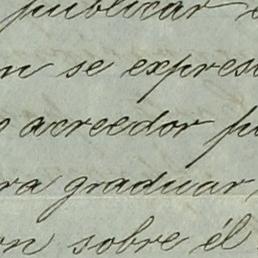 publicar
n se expres
acreedor p
ra graduar
on sobre él